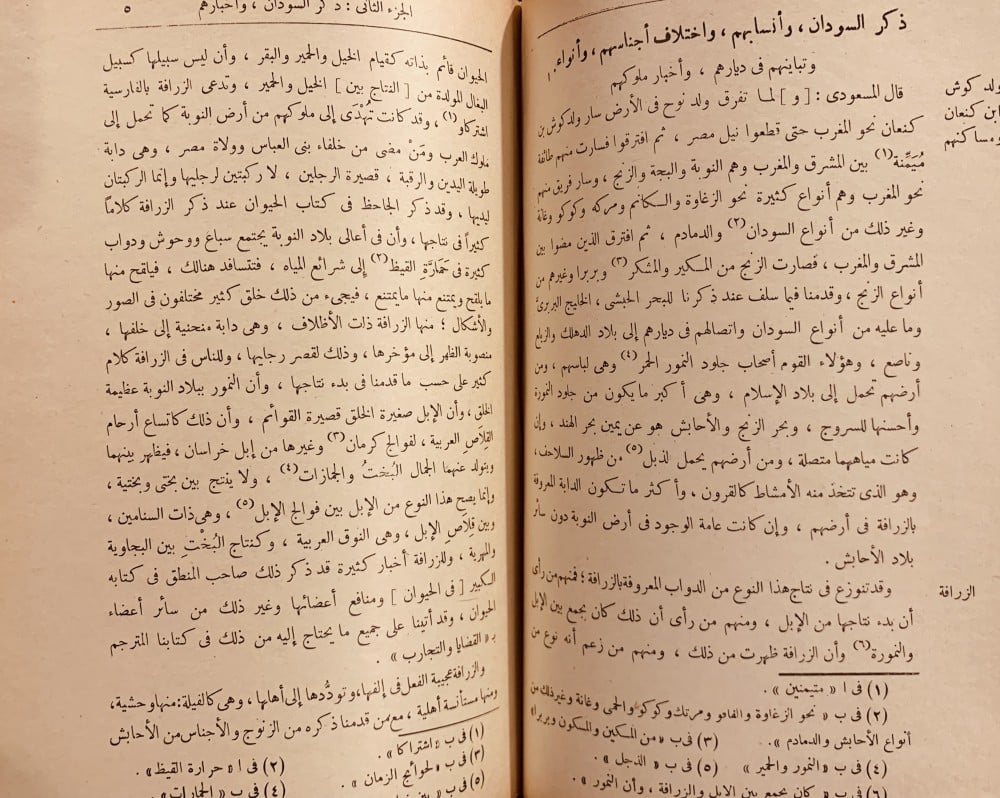 ذكر السودان ، وأنسابهم ، واختلاف أجناسهم ، وأنواعهم
وتباينهم فى ديارهم ، وأخبار ملوكهم
ولد كوش
ابن كنعان
ومساكنهم
قال المسعودى : [ و ] لما تفرق ولد نوح فى الأرض سار ولد كوش بن
كنعان نحو المغرب حتى قطعوا نيل مصر ، ثم افترقوا فسارت منهم طائفة
مُيَمِّنَة(١) بين المشرق والمغرب وهم النوبة والبجة والزنج ، وسار فريق منهم
نحو المغرب وهم أنواع كثيرة نحو الزغاوة والكانم ومركه وكوكو وغانة
وغير ذلك من أنواع السودان(٢) والدمادم ، ثم افترق الذين مضوا بين
المشرق والمغرب ، فصارت الزنج من المكير والمشكر(٣) وبربرا وغيرهم من
أنواع الزنج ، وقدمنا فيما سلف عند ذكرنا للبحر الحبشى ، الخليج البربرىَّ
وما عليه من أنواع السودان واتصالهم فى ديارهم إلى بلاد الدهلك والزيلع
وناصع ، وهؤلاء القوم أصحاب جلود النمور الحمر(٤) وهى لباسهم ، ومن
أرضهم تحمل إلى بلاد الإسلام ، وهى أكبر ما يكون من جلود النمورة
وأحسنها للسروج ، وبحر الزنج والأحابش هو عن يمين بحر الهند ، وإن
كانت مياههما متصلة ، ومن أرضهم يحمل الذبل(٥) من ظهور السلاحف ،
وهو الذى تتخذ منه الأمشاط كالقرون ، وأكثر ما تكون الدابة المعروفة
بالزرافة فى أرضهم ، وإن كانت عامة الوجود فى أرض النوبة دون سائر
بلاد الأحابش .
الزرافة
وقد تنوزع فى نتاج هذا النوع من الدواب المعروفة بالزرافة ؛ فمنهم من رأى
أن بدء نتاجها من الإبل ، ومنهم من رأى أن ذلك كان بجمع بين الإبل
والنمورة(٦) وأن الزرافة ظهرت من ذلك ، ومنهم من زعم أنه نوع من
(١) فى ا « متيمنين » .
(٢) فى ب « نحو الزغاوة والفافو ومرتك وكوكو والحمى وغانة وغير ذلك من
أنواع الأحابش والدمادم » . (٣) فى ب « من المسكين والمسكون وبربرا»
(٤) فى ب « النمور والحمير » (٥) فى ب « الذجل » .
(٦) فى ب « كان بجمع بين الإبل والزرافة ، وأن النمور »
الجزء الثانى : ذكر السودان ، وأخبارهم ٥
الحيوان قائم بذاته كقيام الخيل والحمير والبقر ، وأن ليس سبيلها كسبيل
البغال المولدة من [ النتاج بين ] الخيل والحمير ، وتدعى الزرافة بالفارسية
اشتركاو(١) ، وقد كانت تُهْدَى إلى ملوكهم من أرض النوبة كما تحمل إلى
ملوك العرب ومَنْ مضى من خلفاء بنى العباس وولاة مصر ، وهى دابة
طويلة اليدين والرقبة ، قصيرة الرجلين ، لا ركبتين لرجليها وإنما الركبتان
ليديها ، وقد ذكر الجاحظ فى كتاب الحيوان عند ذكر الزرافة كلاماً
كثيراً فى نتاجها ، وأن فى أعالى بلاد النوبة يجتمع سباع ووحوش ودواب
كثيرة فى حَمَارَّةِ القيظ(٢) إلى شرائع المياه ، فتتسافد هنالك ، فيلقح منها
ما يلقح ويمتنع منها ما يمتنع ، فيجىء من ذلك خلق كثير مختلفون فى الصور
والأشكال ؛ منها الزرافة ذات الأظلاف ، وهى دابة منحنية إلى خلفها ،
منصوبة الظهر إلى مؤخرها ، وذلك لقصر رجليها ، وللناس فى الزرافة كلام
كثير على حسب ما قدمنا فى بدء نتاجها ، وأن النمور ببلاد النوبة عظيمة
الخلق ، وأن الإبل صغيرة الخلق قصيرة القوائم ، وأن ذلك كاتساع أرحام
القِلاَصِ العربية ، لفوالج كرمان(٣) وغيرها من إبل خراسان ، فيظهر بينهما
ويتولد عنهما الجمال البُخْتُ والجمازات(٤) ، ولا ينتج بين بختى وبختية ،
وإنما يصح هذا النوع من الإبل بين فوالج الإبل(٥) ، وهى ذات السنامين ،
وبين قِلاَصِ الإبل ، وهى النوق العربية ، وكنتاج البُخْتِ بين البجاوية
والمهرية ، وللزرافة أخبار كثيرة قد ذكر ذلك صاحب المنطق فى كتابه
الكبير [ فى الحيوان ] ومنافع أعضائها وغير ذلك من سائر أعضاء
الحيوان ، وقد أتينا على جميع ما يحتاج إليه من ذلك فى كتابنا المترجم
بـ « القضايا والتجارب » .
والزرافة عجيبة الفعل فى إلفها ، وتودُّدها إلى أهلها ، وهى كالفيلة : منها وحشية ،
ومنها مستأنسة أهلية ، مع من قدمنا ذكره من الزنوج والأجناس من الأحابش
(١) فى ب « اشتراكا » . (٢) فى ا « حرارة القيظ » .
(٣) فى ب « لحوائج الزمان » . (٤) فى ب « الحمازات » .
(٥) فى ب « بين